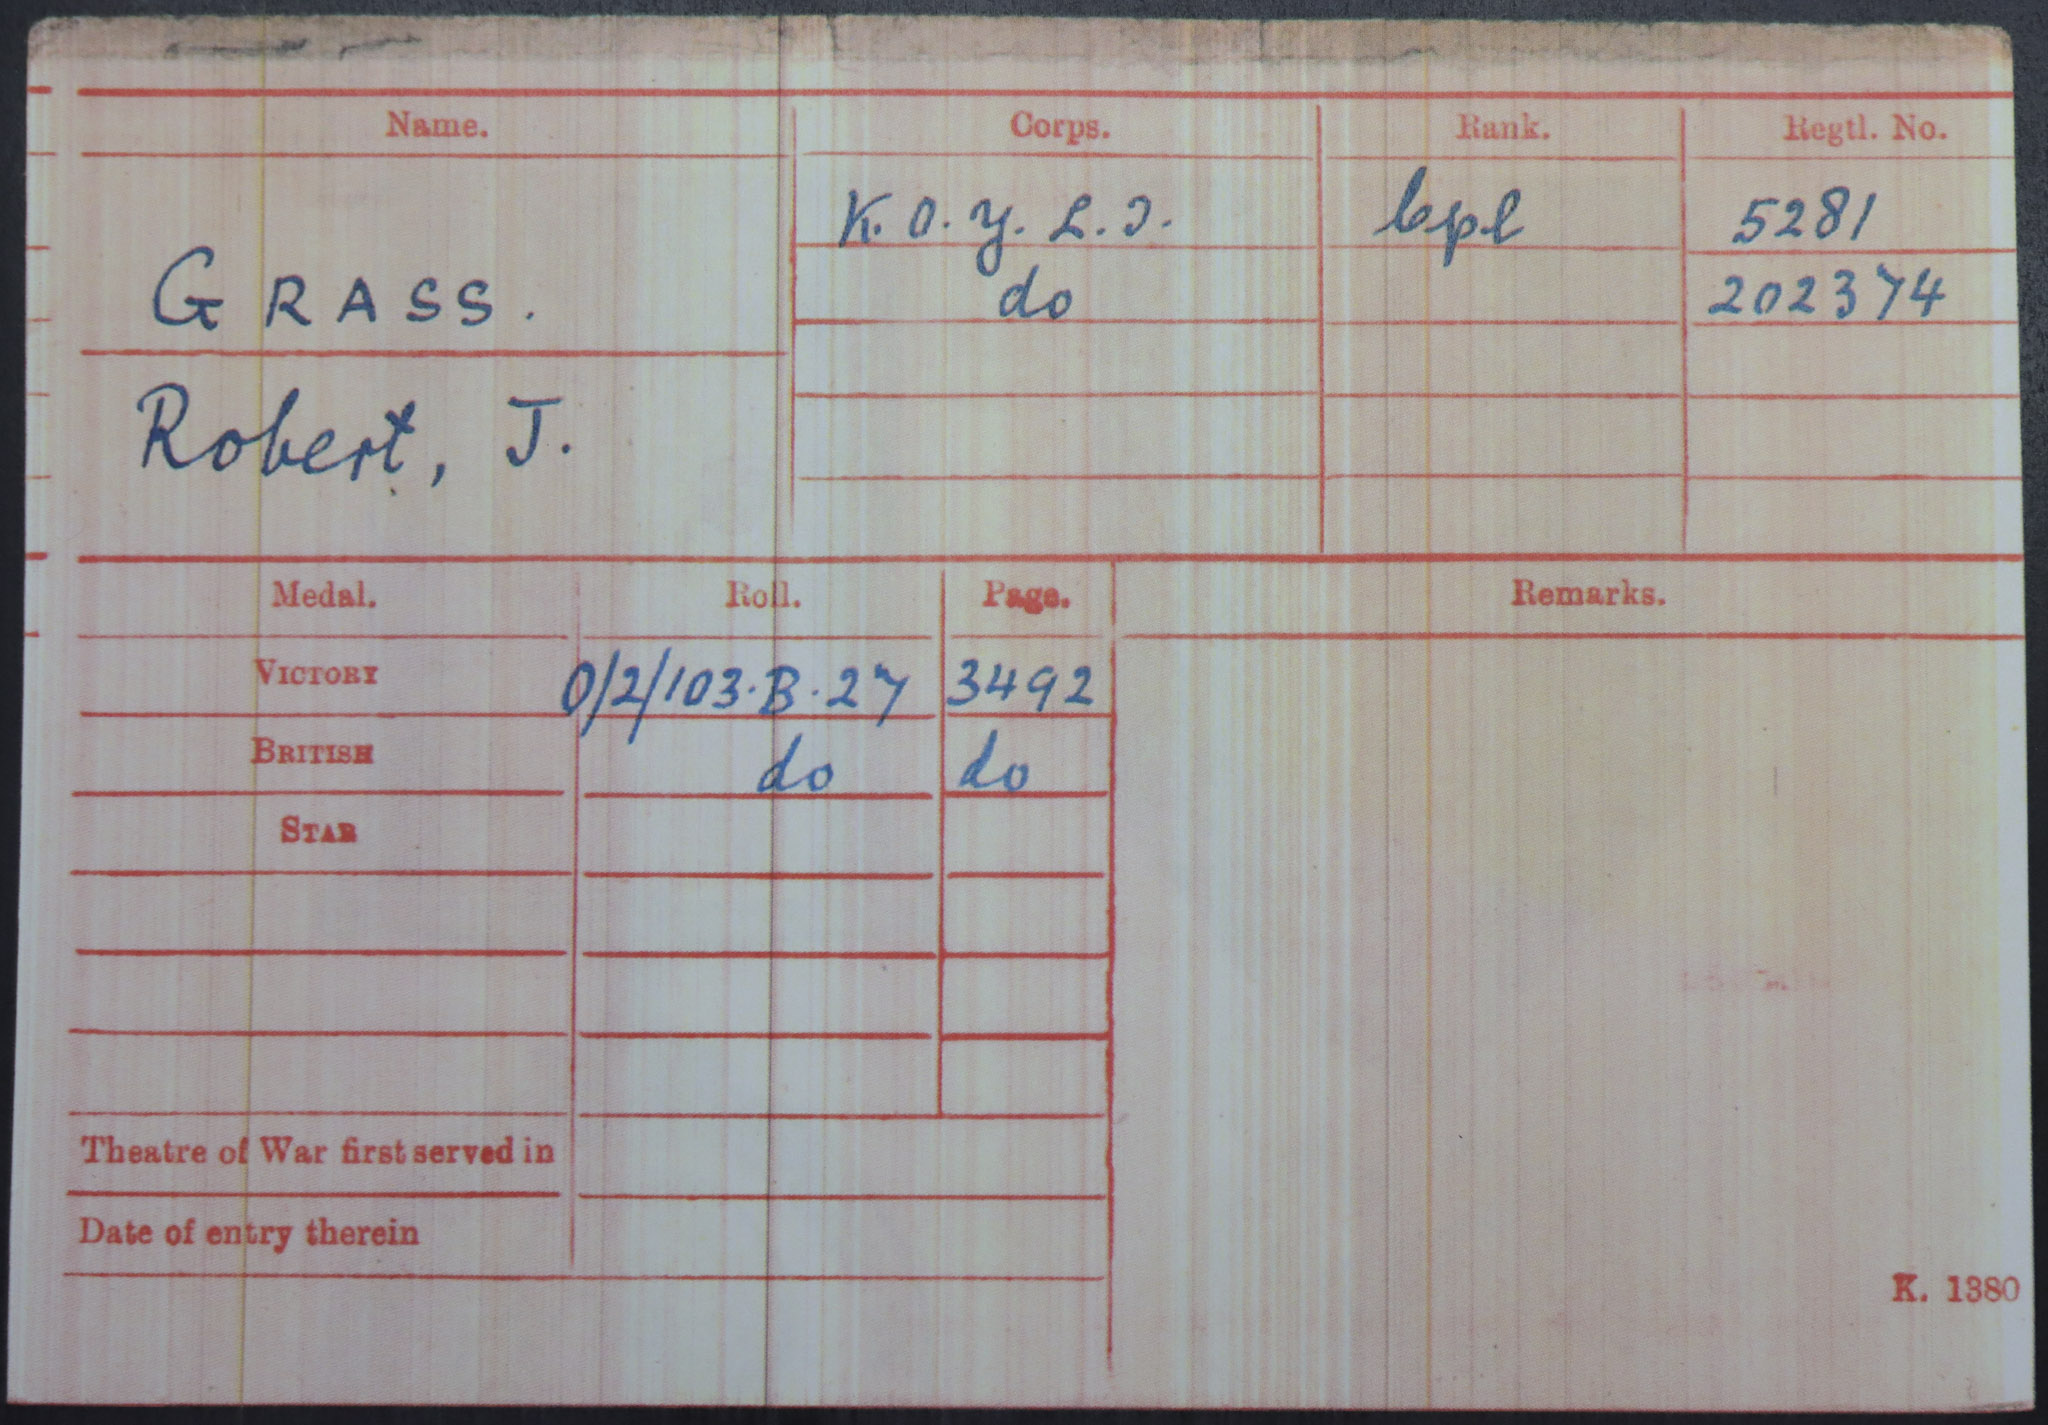 Name. Corps. Rank. Regtl. No.
K. O. Y. L. I. Cpl 5281
GRASS. do 202374
Robert, J.
Medal. Roll. Page. Remarks.
VICTORY O/2/103.B.27 3492
BRITISH do do
STAR
Theatre of War first served in
Date of entry therein
K. 1380